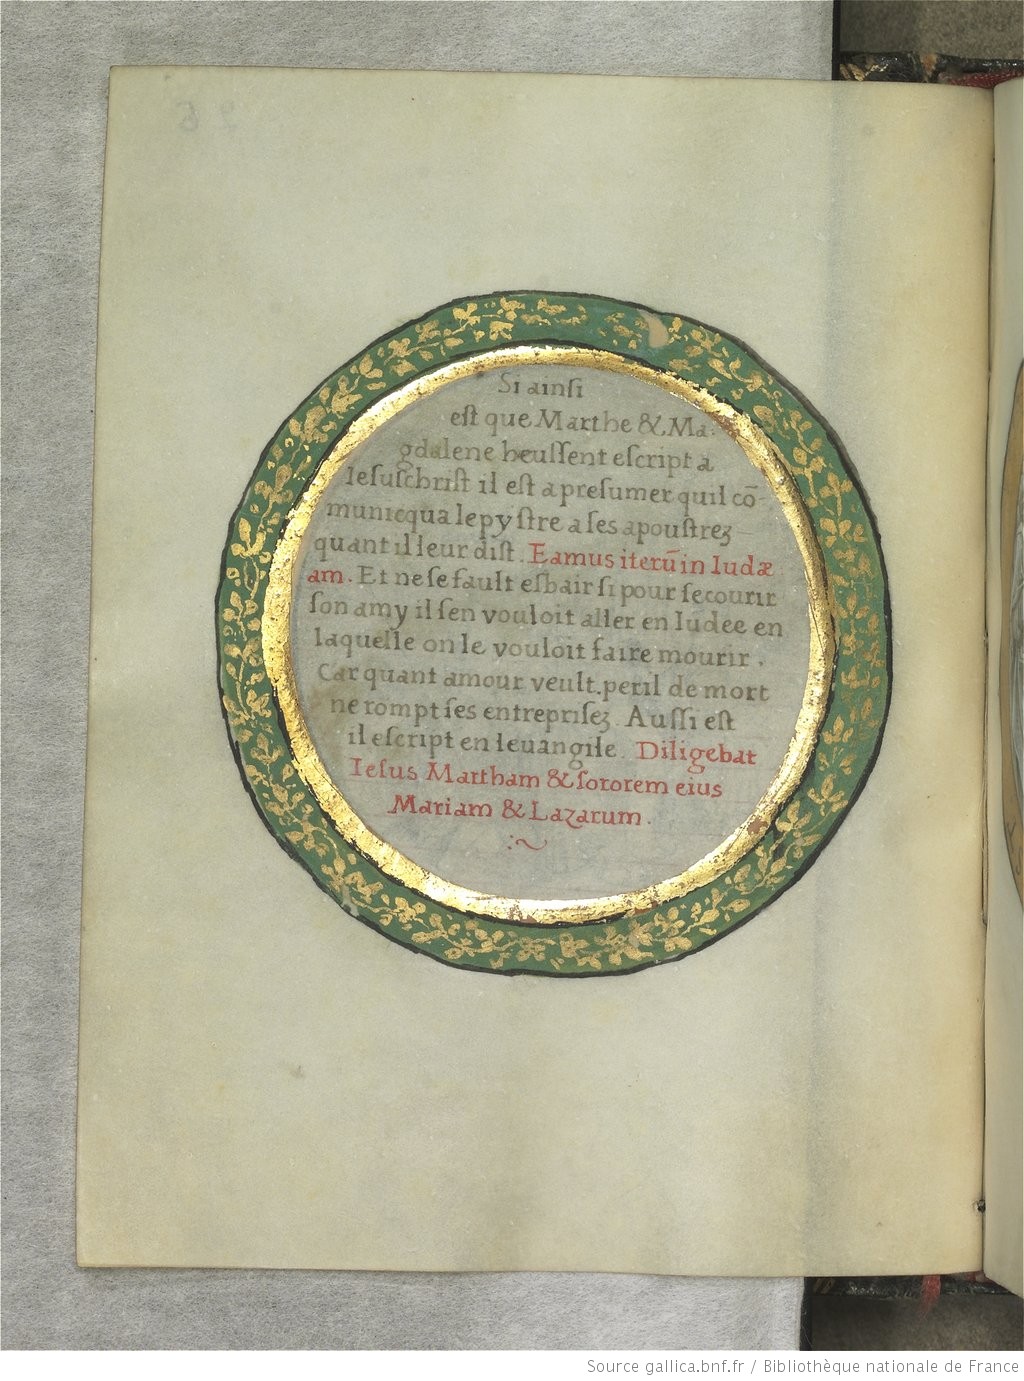 Si ainsi
est que Marthe & Ma-
gdalene heussent escript a
Iesuschrist il est a presumer quil cō-
municqua lepystre a ses apoustrez
quant il leur dist. Eamus iterū in Iudæ
am. Et ne se fault esbair si pour secourir
son amy il sen vouloit aller en Iudee en
laquelle on le vouloit faire mourir.
Car quant amour veult, peril de mort
ne rompt ses entreprisez. Aussi est
il escript en leuangile. Diligebat
Iesus Martham & sororem eius
Mariam & Lazarum.
Source gallica.bnf.fr / Bibliothèque nationale de France